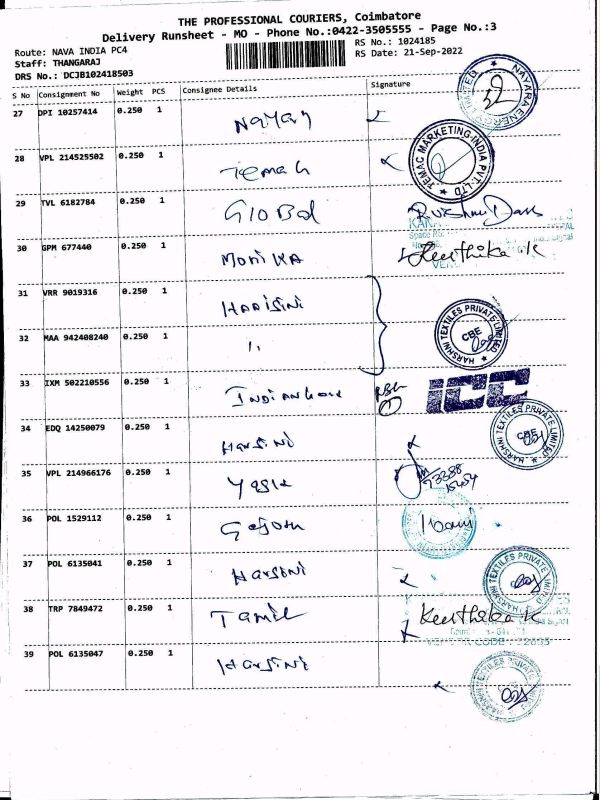 THE PROFESSIONAL COURIERS, Coimbatore
Delivery Runsheet - MO - Phone No.:0422-3505555 - Page No.:3
Route: NAVA INDIA PC4
RS No.: 1024185
Staff: THANGARAJ
RS Date: 21-Sep-2022
DRS No.: DCJB102418503
S No Consignment No Weight PCS Consignee Details Signature
27 DPI 10257414 0.250 1 Nayar
NAYARA ENERGY LIMITED
28 VPL 214525502 0.250 1 Temac
TEMAC MARKETING-INDIA PVT-LTD
29 TVL 6182784 0.250 1 Global
30 GPM 677440 0.250 1 MoniKA Keerthika.K
31 VRR 9019316 0.250 1 HARISINI
32 MAA 942408240 0.250 1 "
HARSHNI TEXTILES PRIVATE LIMITED CBE
33 IXM 502210556 0.250 1 ICC
34 EDQ 14250079 0.250 1 Harsini
HARSHNI TEXTILES PRIVATE LIMITED CBE
35 VPL 214966176 0.250 1
36 POL 1529112 0.250 1
37 POL 6135041 0.250 1 Harsini
HARSHNI TEXTILES PRIVATE LIMITED
38 TRP 7849472 0.250 1 Tamil Keerthika.K
39 POL 6135047 0.250 1 Harsini